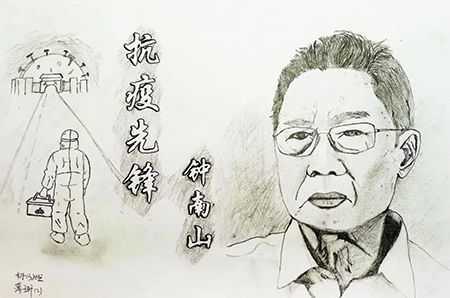 抗疫先锋
钟南山